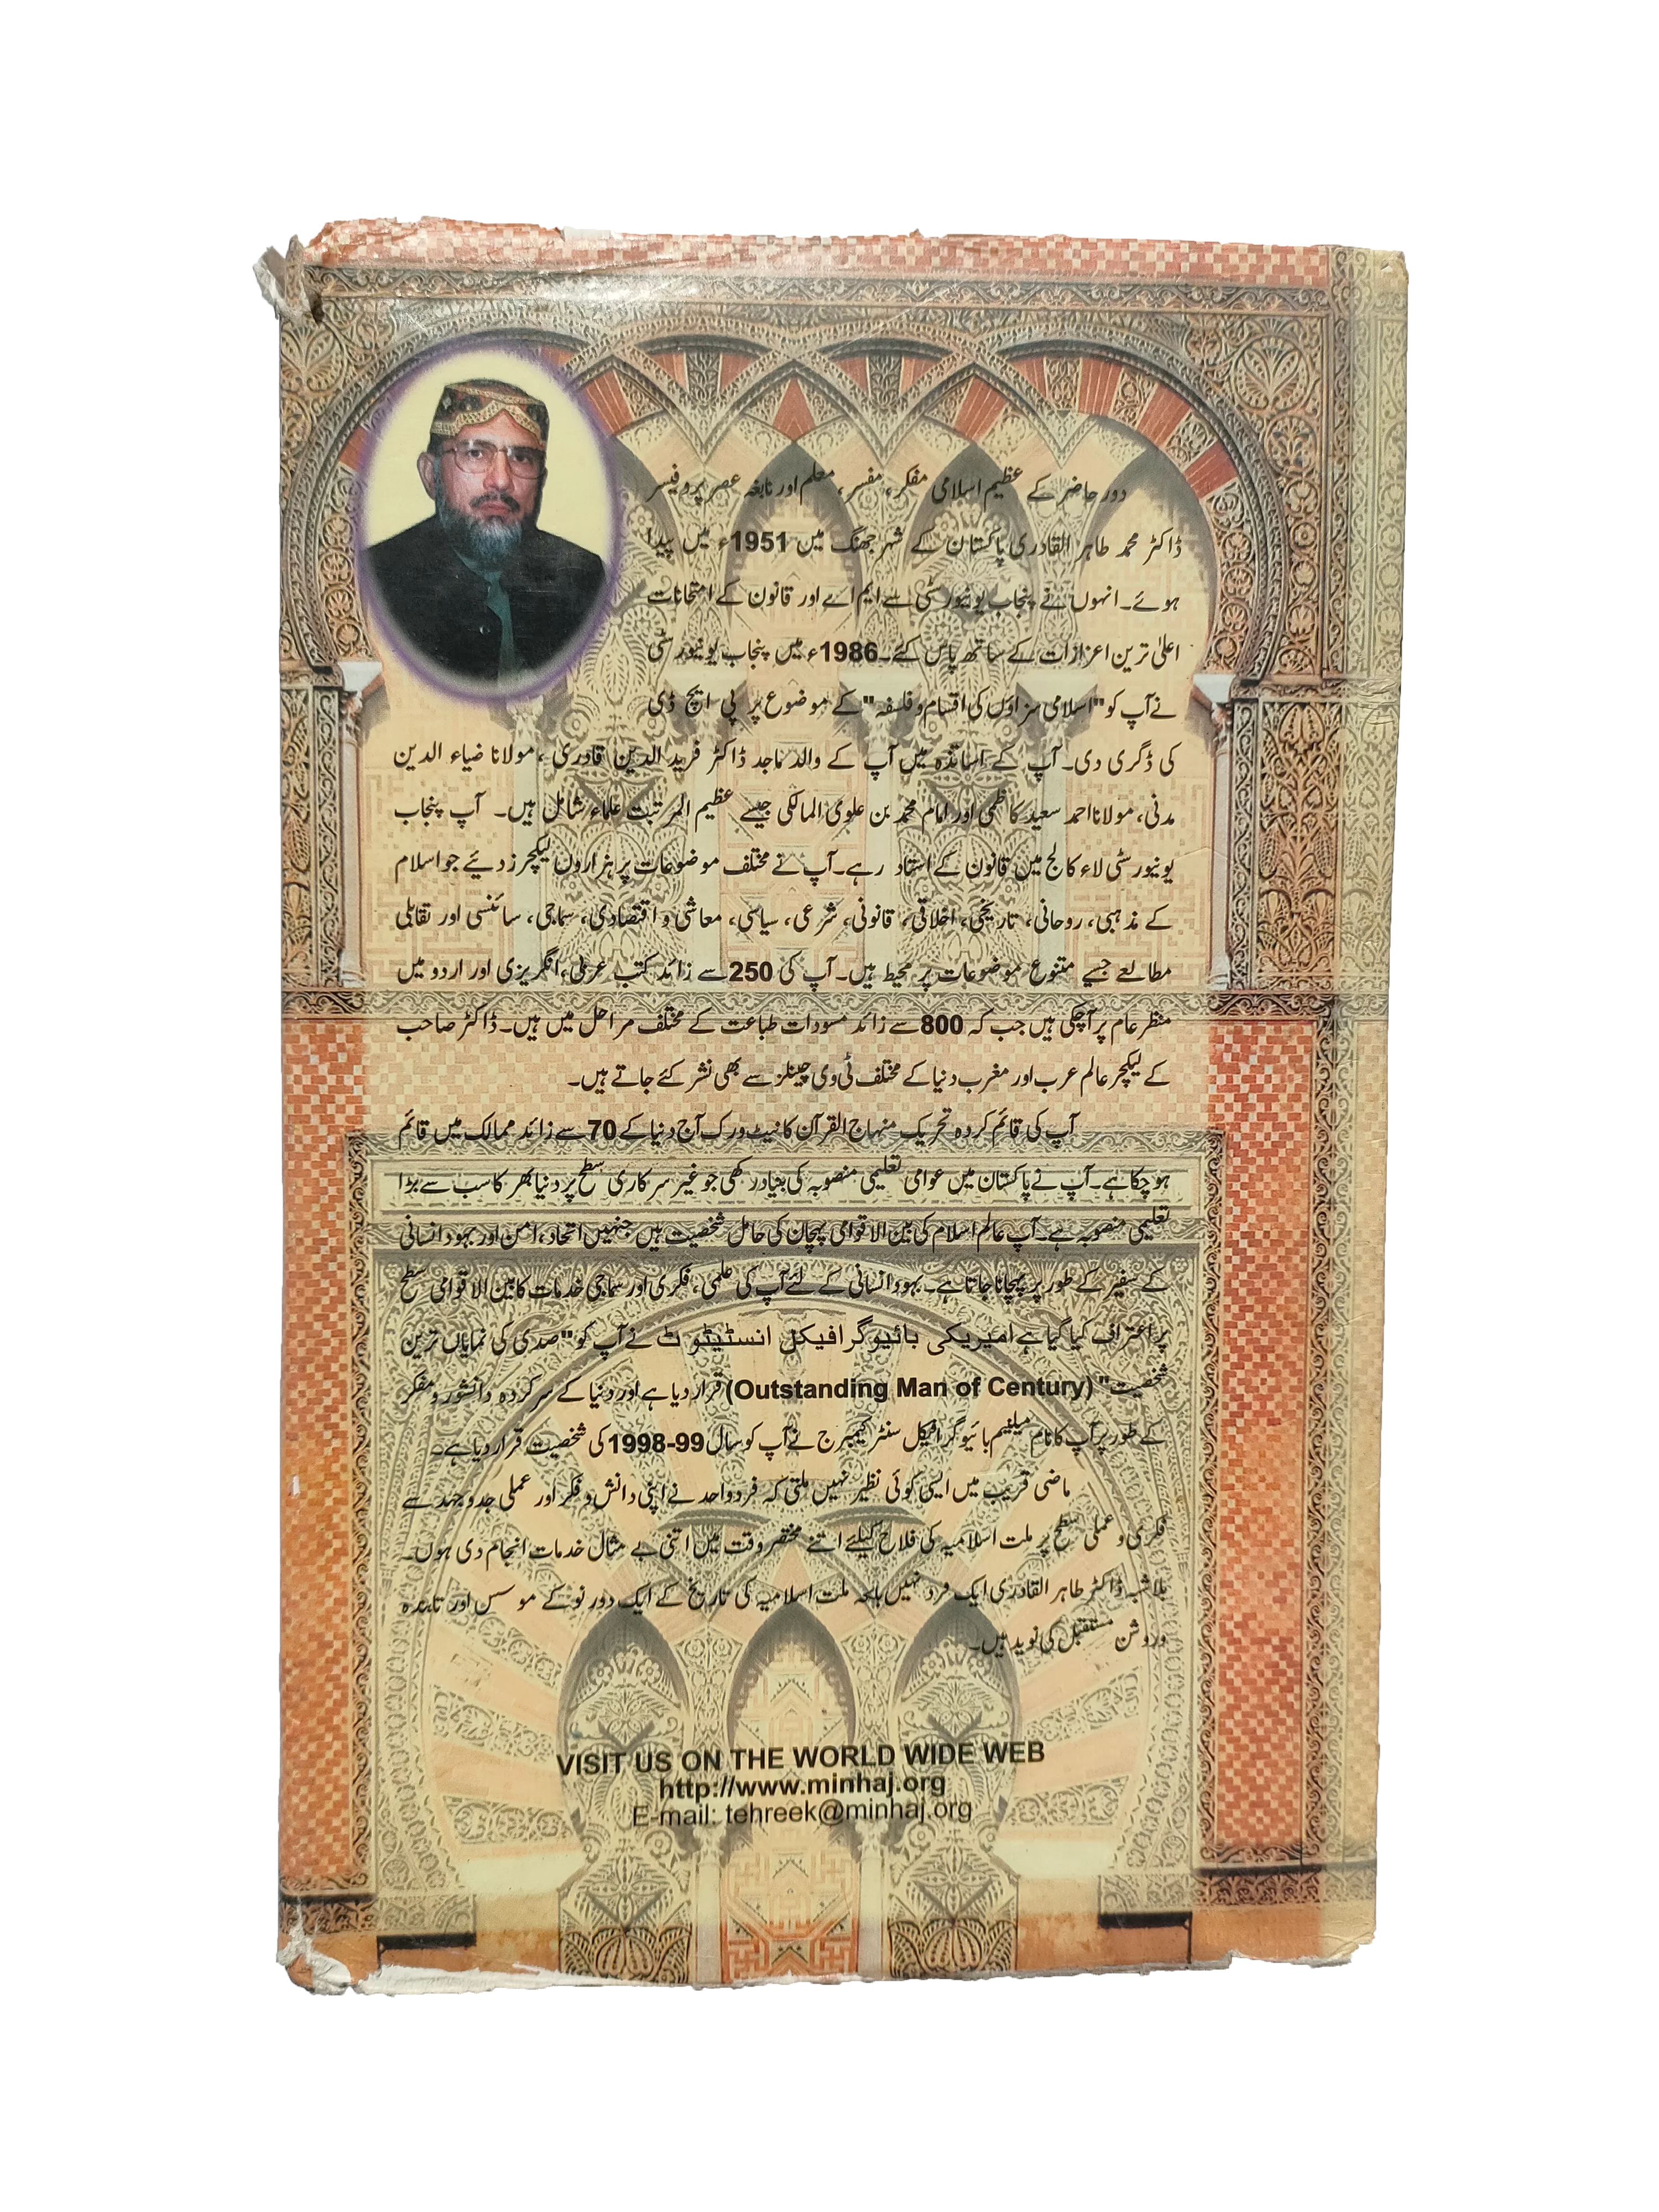 دور حاضر کے عظیم اسلامی مفکر، مفسر، معلم اور نابغہ عصر پروفیسر
ڈاکٹر محمد طاہر القادری پاکستان کے شہر جھنگ میں 1951ء میں پیدا
ہوئے۔ انہوں نے پنجاب یونیورسٹی سے ایم اے اور قانون کے امتحانات
اعلیٰ ترین اعزازات کے ساتھ پاس کئے۔ 1986ء میں پنجاب یونیورسٹی
نے آپ کو "اسلامی سزاؤں کی اقسام و فلسفہ" کے موضوع پر پی ایچ ڈی
کی ڈگری دی۔ آپ کے اساتذہ میں آپ کے والد ماجد ڈاکٹر فرید الدین قادری، مولانا ضیاء الدین
مدنی، مولانا احمد سعید کاظمی اور امام محمد بن علوی المالکی جیسے عظیم المرتبت علماء شامل ہیں۔ آپ پنجاب
یونیورسٹی لاء کالج میں قانون کے استاد رہے۔ آپ نے مختلف موضوعات پر ہزاروں لیکچرز دیئے جو اسلام
کے مذہبی، روحانی، تاریخی، اخلاقی، قانونی، شرعی، سیاسی، معاشی و اقتصادی، سماجی، سائنسی اور تقابلی
مطالعے جیسے متنوع موضوعات پر محیط ہیں۔ آپ کی 250 سے زائد کتب عربی، انگریزی اور اردو میں
منظر عام پر آچکی ہیں جب کہ 800 سے زائد مسودات طباعت کے مختلف مراحل میں ہیں۔ ڈاکٹر صاحب
کے لیکچر عالم عرب اور مغرب دنیا کے مختلف ٹی وی چینلز سے بھی نشر کئے جاتے ہیں۔
آپ کی قائم کردہ تحریک منہاج القرآن کا نیٹ ورک آج دنیا کے 70 سے زائد ممالک میں قائم
ہو چکا ہے۔ آپ نے پاکستان میں عوامی تعلیمی منصوبہ کی بنیاد رکھی جو غیر سرکاری سطح پر دنیا بھر کا سب سے بڑا
تعلیمی منصوبہ ہے۔ آپ عالم اسلام کی بین الاقوامی پہچان کی حامل شخصیت ہیں جنہیں اتحاد، امن اور بہبود انسانی
کے سفیر کے طور پر پہچانا جاتا ہے۔ بہبود انسانی کے لئے آپ کی علمی، فکری اور سماجی خدمات کا بین الاقوامی سطح
پر اعتراف کیا گیا ہے امیریکی بائیوگرافیکل انسٹیٹوٹ نے آپ کو "صدی کی نمایاں ترین
شخصیت" (Outstanding Man of Century) قرار دیا ہے اور دنیا کے سرکردہ دانشور و مفکر
کے طور پر آپ کا نام میلنیم بائیوگرافیکل سنٹر کیمبرج نے آپ کو سال 99-1998 کی شخصیت قرار دیا ہے۔
ماضی قریب میں ایسی کوئی نظیر نہیں ملتی کہ فرد واحد نے اپنی دانش و فکر اور عملی جدوجہد سے
فکری و عملی سطح پر ملت اسلامیہ کی فلاح کیلئے اتنے مختصر وقت میں اتنی بے مثال خدمات انجام دی ہوں۔
بلاشبہ ڈاکٹر طاہر القادری ایک فرد نہیں بلکہ ملت اسلامیہ کی تاریخ کے ایک دور نو کے موسس اور تابندہ
و روشن مستقبل کی نوید ہیں۔
VISIT US ON THE WORLD WIDE WEB
http://www.minhaj.org
E-mail: tehreek@minhaj.org